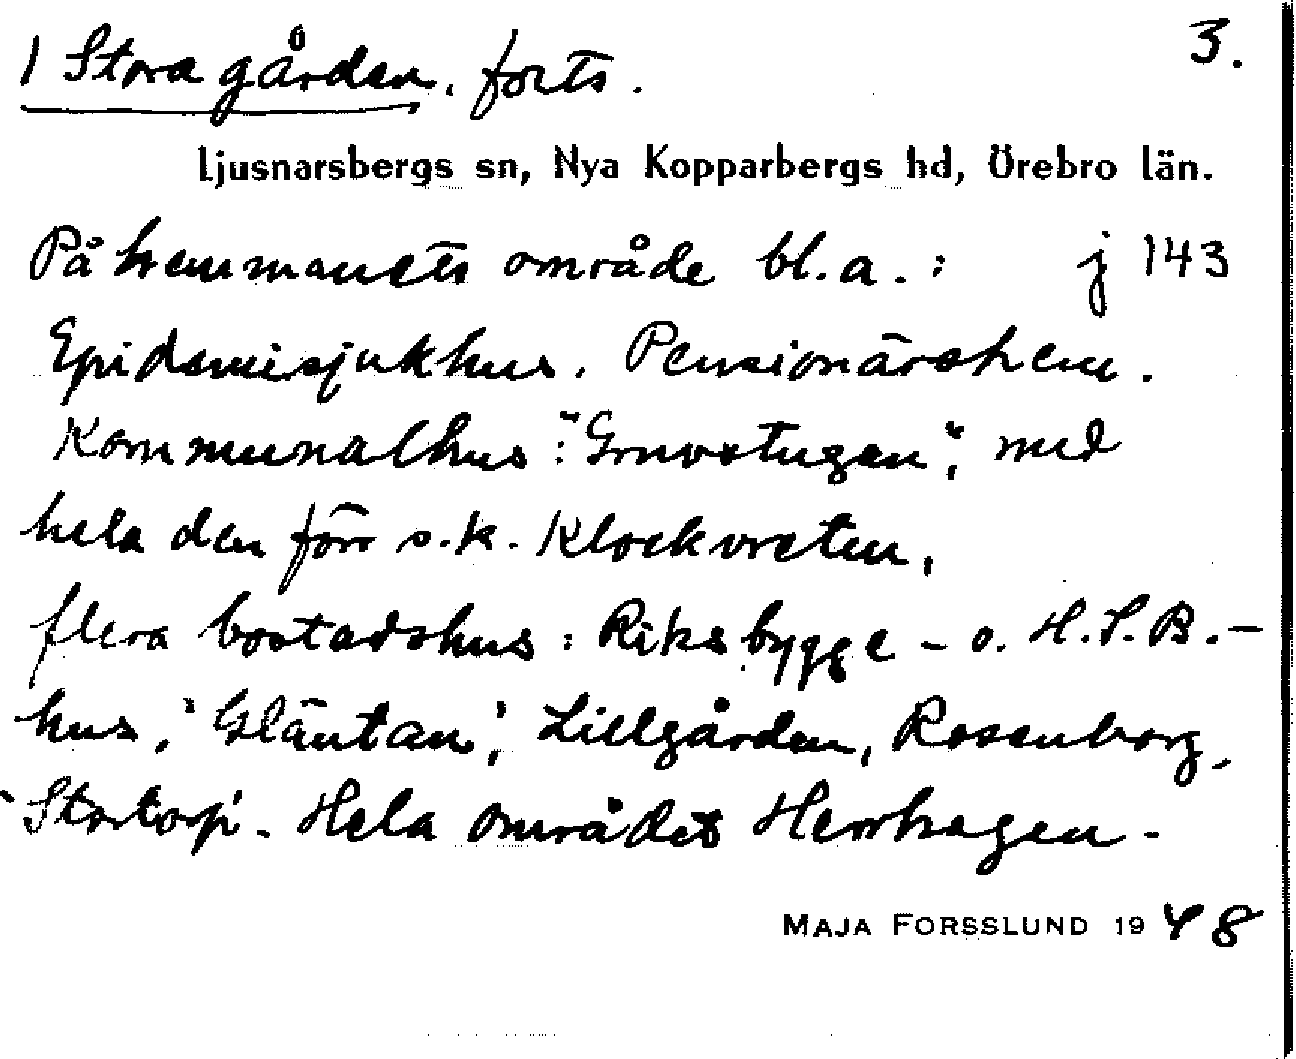 1 Storagården. forts. 3.
Ljusnarsbergs sn, Nya Kopparbergs hd, Örebro län.
På hemmanets område bl.a.: j 143
Epidemisjukhus. Pensionärshem.
Kommunalhus: "Gruvstugan", med
hela den förr s.k. Klockvreten,
flera bostadshus: Riksbygge - o. H.S.B.-
hus, "Gläntan", Lillgården, Rosenborg,
"Stortorp". Hela området Herrhagen.
MAJA FORSSLUND 1948